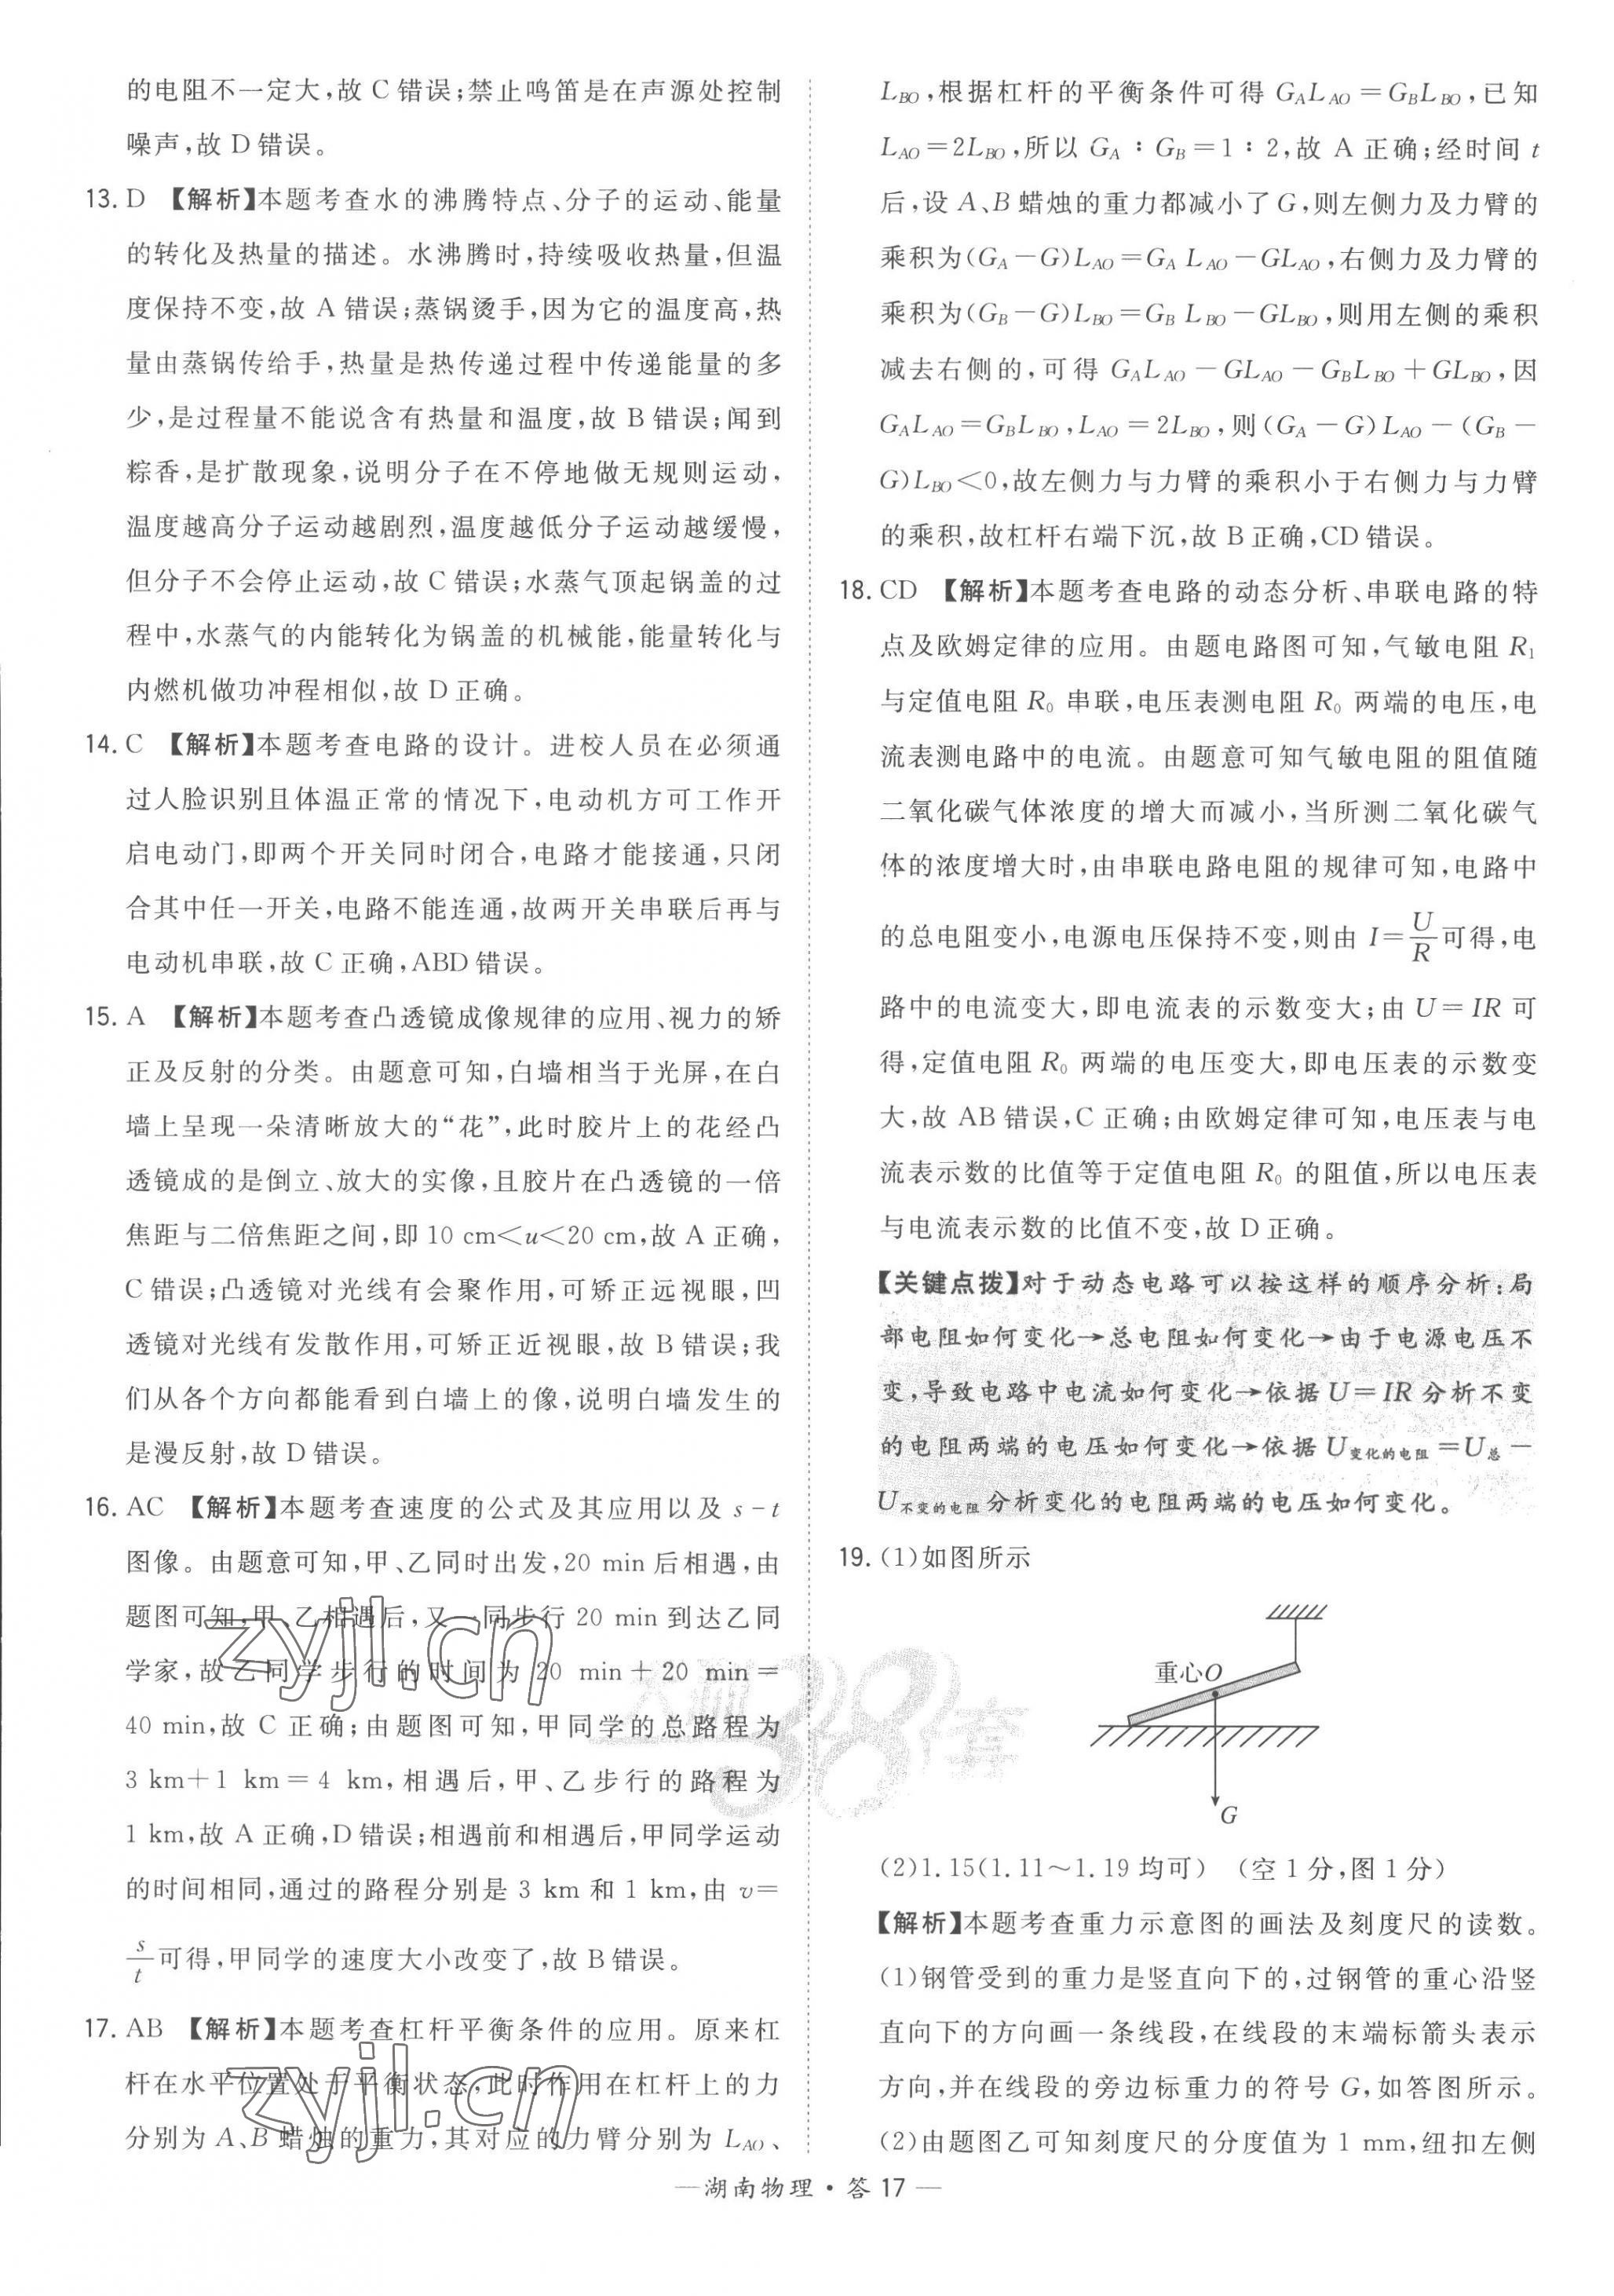 的电阻不一定大,故 C 错误;禁止鸣笛是在声源处控制
噪声,故 D 错误。
13. D 【解析】本题考查水的沸腾特点、分子的运动、能量
的转化及热量的描述。水沸腾时,持续吸收热量,但温
度保持不变,故 A 错误;蒸锅烫手,因为它的温度高,热
量由蒸锅传给手,热量是热传递过程中传递能量的多
少,是过程量不能说含有热量和温度,故 B 错误;闻到
粽香,是扩散现象,说明分子在不停地做无规则运动,
温度越高分子运动越剧烈,温度越低分子运动越缓慢,
但分子不会停止运动,故 C 错误;水蒸气顶起锅盖的过
程中,水蒸气的内能转化为锅盖的机械能,能量转化与
内燃机做功冲程相似,故 D 正确。
14. C 【解析】本题考查电路的设计。进校人员在必须通
过人脸识别且体温正常的情况下,电动机方可工作开
启电动门,即两个开关同时闭合,电路才能接通,只闭
合其中任一开关,电路不能连通,故两开关串联后再与
电动机串联,故 C 正确,ABD 错误。
15. A 【解析】本题考查凸透镜成像规律的应用、视力的矫
正及反射的分类。由题意可知,白墙相当于光屏,在白
墙上呈现一朵清晰放大的“花”,此时胶片上的花经凸
透镜成的是倒立、放大的实像,且胶片在凸透镜的一倍
焦距与二倍焦距之间,即 10 cm<u<20 cm,故 A 正确,
C 错误;凸透镜对光线有会聚作用,可矫正远视眼,凹
透镜对光线有发散作用,可矫正近视眼,故 B 错误;我
们从各个方向都能看到白墙上的像,说明白墙发生的
是漫反射,故 D 错误。
16. AC 【解析】本题考查速度的公式及其应用以及 s-t
图像。由题意可知,甲、乙同时出发,20 min 后相遇,由
题图可知,甲、乙相遇后,又一同步行 20 min 到达乙同
学家,故乙同学步行的时间为 20 min+20 min=
40 min,故 C 正确;由题图可知,甲同学的总路程为
3 km+1 km=4 km,相遇后,甲、乙步行的路程为
1 km,故 A 正确,D 错误;相遇前和相遇后,甲同学运动
的时间相同,通过的路程分别是 3 km 和 1 km,由 v=
s/t 可得,甲同学的速度大小改变了,故 B 错误。
17. AB 【解析】本题考查杠杆平衡条件的应用。原来杠
杆在水平位置处于平衡状态,此时作用在杠杆上的力
分别为 A、B 蜡烛的重力,其对应的力臂分别为 L_AO、
L_BO,根据杠杆的平衡条件可得 G_A L_AO=G_B L_BO,已知
L_AO=2L_BO,所以 G_A:G_B=1:2,故 A 正确;经时间 t
后,设 A、B 蜡烛的重力都减小了 G,则左侧力及力臂的
乘积为(G_A-G)L_AO=G_A L_AO-GL_AO,右侧力及力臂的
乘积为(G_B-G)L_BO=G_B L_BO-GL_BO,则用左侧的乘积
减去右侧的,可得 G_A L_AO-GL_AO-G_B L_BO+GL_BO,因
G_A L_AO=G_B L_BO,L_AO=2L_BO,则(G_A-G)L_AO-(G_B-
G)L_BO<0,故左侧力与力臂的乘积小于右侧力与力臂
的乘积,故杠杆右端下沉,故 B 正确,CD 错误。
18. CD 【解析】本题考查电路的动态分析、串联电路的特
点及欧姆定律的应用。由题电路图可知,气敏电阻 R₁
与定值电阻 R₀ 串联,电压表测电阻 R₀ 两端的电压,电
流表测电路中的电流。由题意可知气敏电阻的阻值随
二氧化碳气体浓度的增大而减小,当所测二氧化碳气
体的浓度增大时,由串联电路电阻的规律可知,电路中
的总电阻变小,电源电压保持不变,则由 I=U/R 可得,电
路中的电流变大,即电流表的示数变大;由 U=IR 可
得,定值电阻 R₀ 两端的电压变大,即电压表的示数变
大,故 AB 错误,C 正确;由欧姆定律可知,电压表与电
流表示数的比值等于定值电阻 R₀ 的阻值,所以电压表
与电流表示数的比值不变,故 D 正确。
【关键点拨】对于动态电路可以按这样的顺序分析:局
部电阻如何变化→总电阻如何变化→由于电源电压不
变,导致电路中电流如何变化→依据 U=IR 分析不变
的电阻两端的电压如何变化→依据 U变化的电阻=U总-
U不变的电阻分析变化的电阻两端的电压如何变化。
19. (1)如图所示
重心O
G
(2)1.15(1.11~1.19 均可) (空 1 分,图 1 分)
【解析】本题考查重力示意图的画法及刻度尺的读数。
(1)钢管受到的重力是竖直向下的,过钢管的重心沿竖
直向下的方向画一条线段,在线段的末端标箭头表示
方向,并在线段的旁边标重力的符号 G,如答图所示。
(2)由题图乙可知刻度尺的分度值为 1 mm,纽扣左侧
—湖南物理·答 17 —
zyjl.cn
zyjl.cn
天师38套